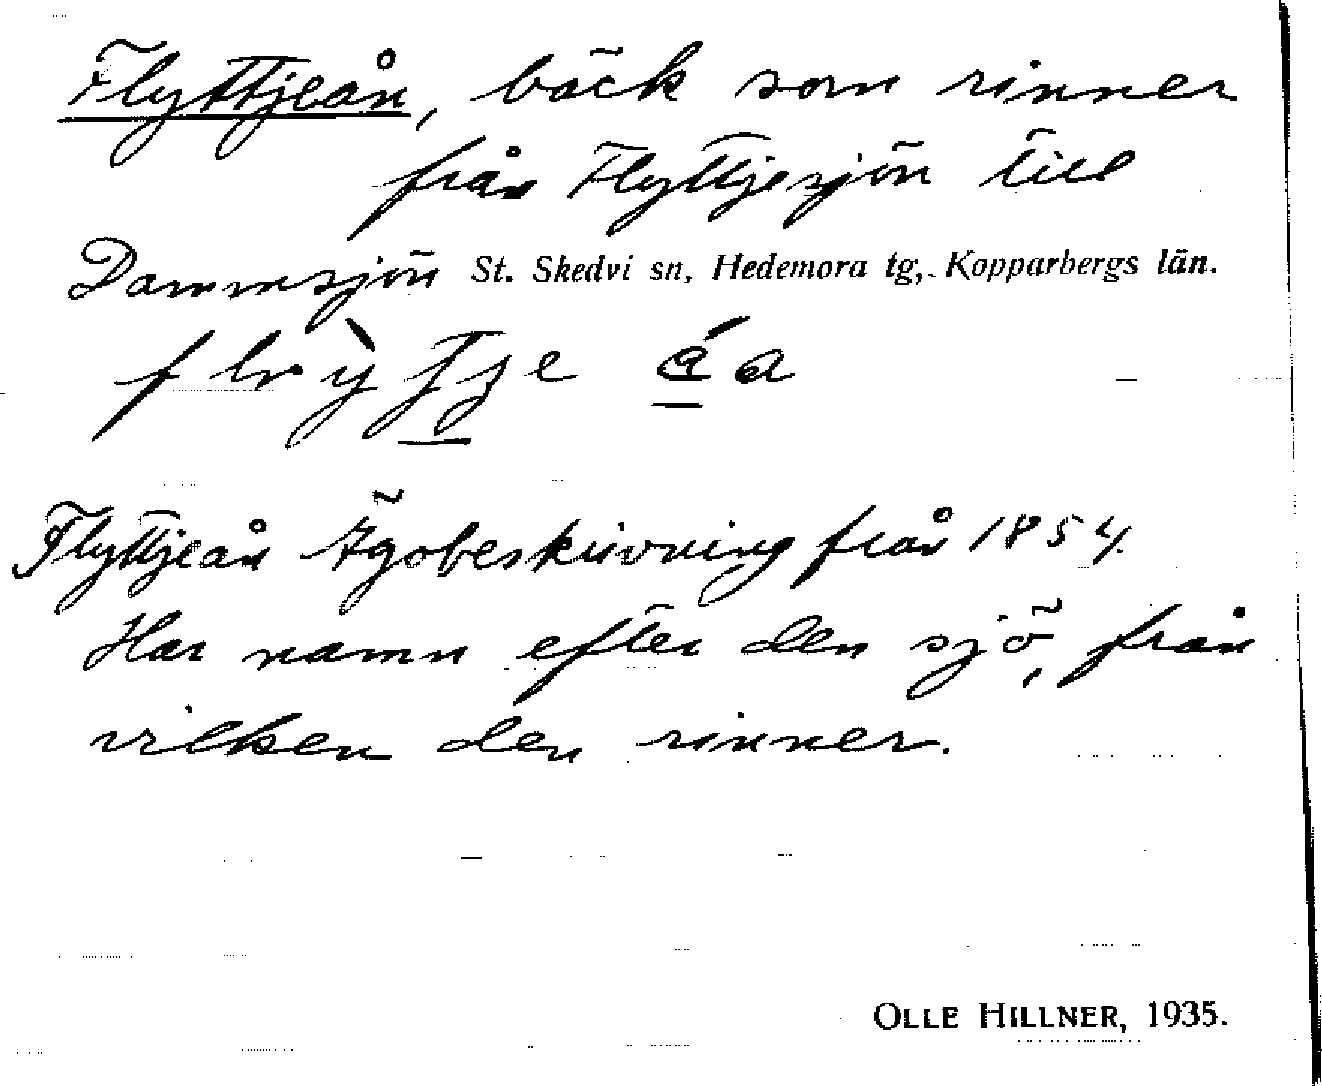 Flyttjeån, bäck som rinner
från Flyttjesjön till
Dammsjön St. Skedvi sn, Hedemora tg, Kopparbergs län.
Flyttjeån Ägobeskrivning från 1854.
Har namn efter den sjö, från
vilken den rinner.
OLLE HILLNER, 1935.